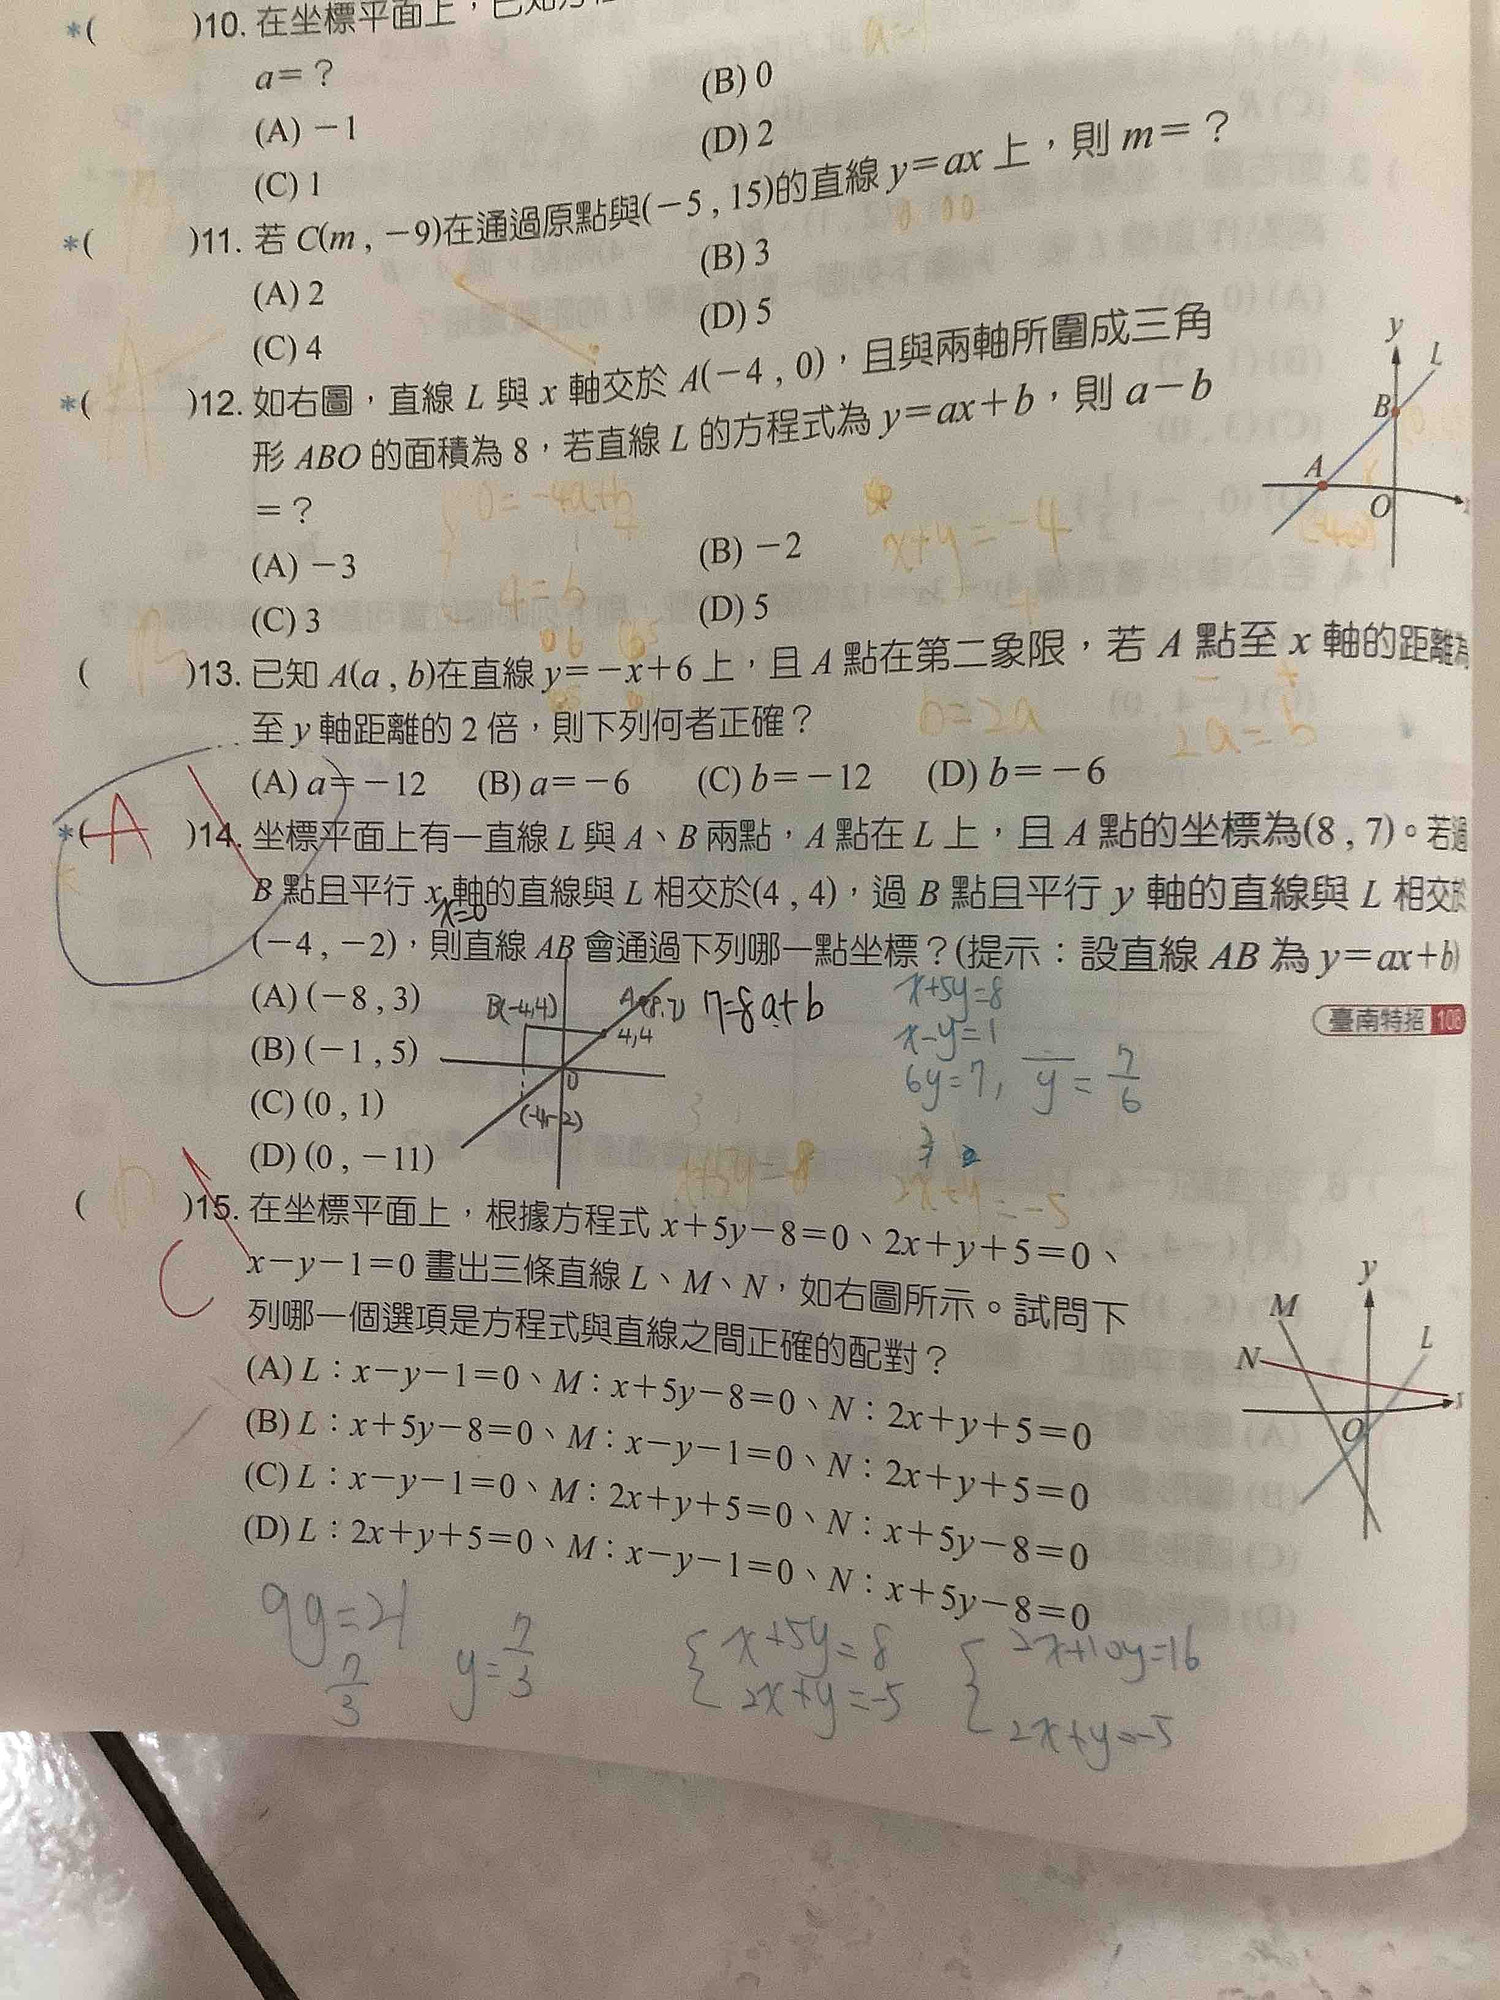 *( )10. 在坐標平面上，已知方程
a=？
(A) −1
(B) 0
(C) 1
(D) 2
*( )11. 若 C(m , −9)在通過原點與(−5 , 15)的直線 y=ax 上，則 m=？
(A) 2
(B) 3
(C) 4
(D) 5
*( )12. 如右圖，直線 L 與 x 軸交於 A(−4 , 0)，且與兩軸所圍成三角
形 ABO 的面積為 8，若直線 L 的方程式為 y=ax+b，則 a−b
=？
(A) −3
(B) −2
(C) 3
(D) 5
y
L
B
A
O
x
0=-4a+b
x+y=-4
4=b
( )13. 已知 A(a , b)在直線 y=−x+6 上，且 A 點在第二象限，若 A 點至 x 軸的距離為
至 y 軸距離的 2 倍，則下列何者正確？
b=2a
2a=b
(A) a=−12 (B) a=−6 (C) b=−12 (D) b=−6
*( A )14. 坐標平面上有一直線 L 與 A、B 兩點，A 點在 L 上，且 A 點的坐標為(8 , 7)。若過
B 點且平行 x 軸的直線與 L 相交於(4 , 4)，過 B 點且平行 y 軸的直線與 L 相交於
x=0
(−4 , −2)，則直線 AB 會通過下列哪一點坐標？(提示：設直線 AB 為 y=ax+b)
臺南特招 106
(A) (−8 , 3)
(B) (−1 , 5)
(C) (0 , 1)
(D) (0 , −11)
B(-4,4)
A(8,7)
4,4
0
(-4,-2)
7=8a+b
x+5y=8
x-y=1
6y=7, y=7/6
x+5y=8
2x+y=-5
( )15. 在坐標平面上，根據方程式 x+5y−8=0、2x+y+5=0、
x−y−1=0 畫出三條直線 L、M、N，如右圖所示。試問下
列哪一個選項是方程式與直線之間正確的配對？
C
(A) L：x−y−1=0、M：x+5y−8=0、N：2x+y+5=0
(B) L：x+5y−8=0、M：x−y−1=0、N：2x+y+5=0
(C) L：x−y−1=0、M：2x+y+5=0、N：x+5y−8=0
(D) L：2x+y+5=0、M：x−y−1=0、N：x+5y−8=0
y
M
L
N
x
O
9y=21
7/3
y=7/3
x+5y=8
2x+y=-5
2x+10y=16
2x+y=-5